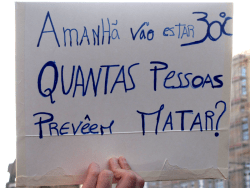 AMANHã Vão ESTAR 30ºC
QUANTAS PESSOAS
PREVÊEM MATAR?